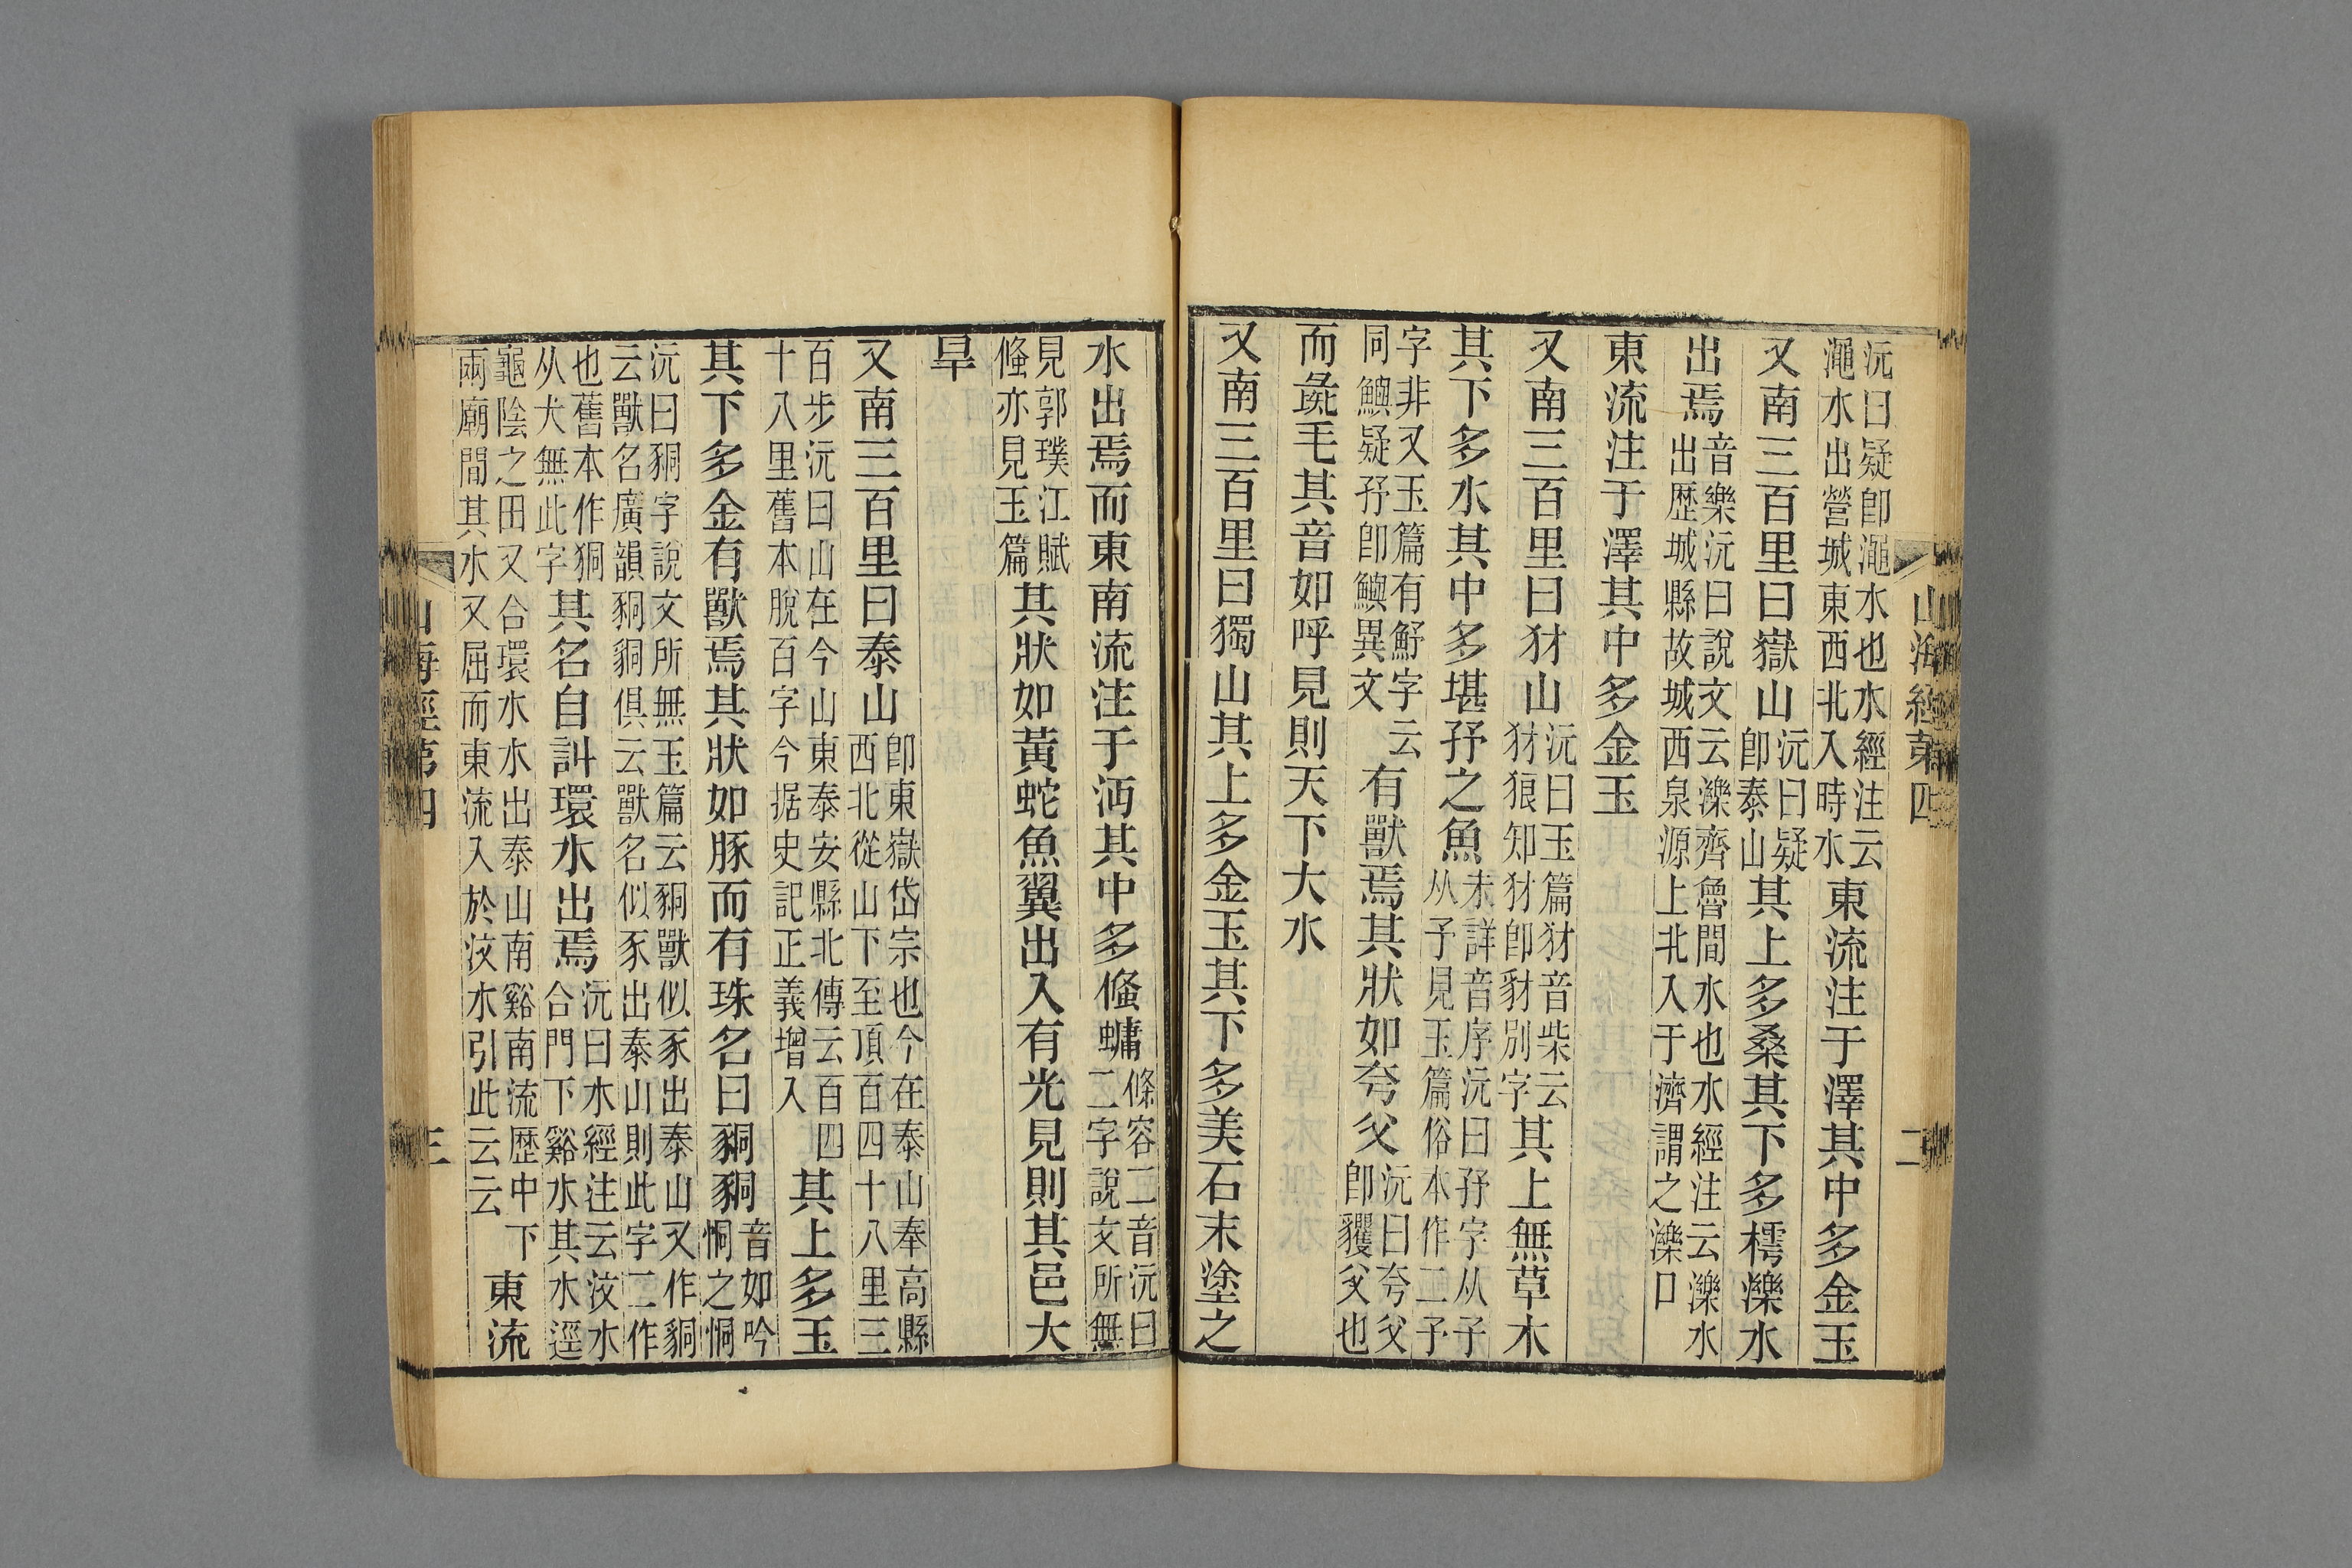 山海經第四
二
沅曰疑卽澠水也水經注云
澠水出營城東西北入時水
東流注于澤其中多金玉
又南三百里曰嶽山
沅曰疑
卽泰山
其上多桑其下多樗濼水
出焉
音樂沅曰說文云濼齊魯間水也水經注云濼水
出歷城縣故城西泉源上北入于濟謂之濼口
東流注于澤其中多金玉
又南三百里曰犲山
沅曰玉篇犲音柴云
犲狼知犲卽豺別字
其上無草木
其下多水其中多堪㐨之魚
未詳音序沅曰㐨字从子
从予見玉篇俗本作二予
字非又玉篇有䱷字云
同鱮疑㐨卽鱮異文
有獸焉其狀如夸父
沅曰夸父
卽玃父也
而彘毛其音如呼見則天下大水
又南三百里曰獨山其上多金玉其下多美石末塗之
水出焉而東南流注于沔其中多䖺𧌁
條容二音沅曰
二字說文所無
見郭璞江賦
䖺亦見玉篇
其狀如黃蛇魚翼出入有光見則其邑大
旱
又南三百里曰泰山
卽東嶽岱宗也今在泰山奉高縣
西北從山下至頂百四十八里三
百步沅曰山在今山東泰安縣北傳云百四
十八里舊本脫百字今据史記正義增入
其上多玉
其下多金有獸焉其狀如豚而有珠名曰狪狪
音如吟
恫之恫
沅曰狪字說文所無玉篇云狪獸似豕出泰山又作狪
云獸名廣韻狪狪俱云獸名似豕出泰山則此字二作
也舊本作狪
从犬無此字
其名自訆環水出焉
沅曰水經注云汶水
合門下谿水其水逕
龜陰之田又合環水水出泰山南谿南流歷中下
兩廟間其水又屈而東流入於汶水引此云云
東流
山海經第四
三